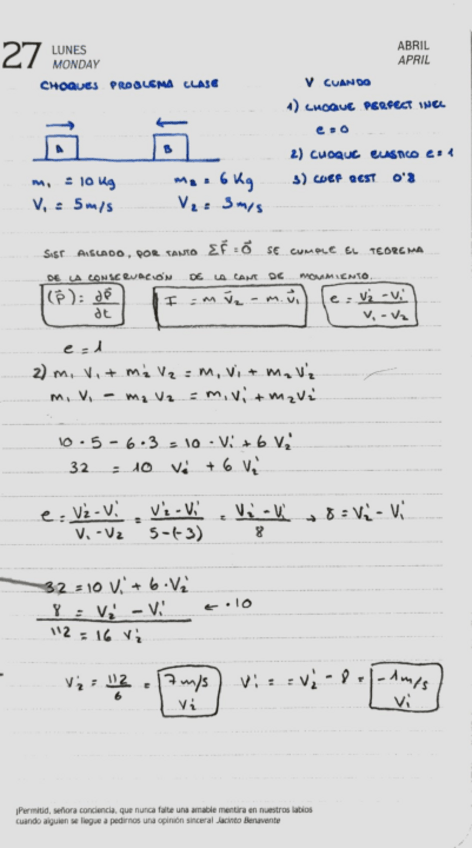 27 LUNES ABRIL
MONDAY APRIL
CHOQUES PROBLEMA CLASE
V CUANDO
1) CHOQUE PERFECT INEL
e = 0
2) CHOQUE ELASTICO e = 1
3) COEF REST 0'8
A B
m₁ = 10 Kg m₂ = 6 Kg
V₁ = 5 m/s V₂ = 3 m/s
SIST AISLADO, POR TANTO ΣF⃗ = 0⃗ SE CUMPLE EL TEOREMA
DE LA CONSERVACIÓN DE LA CANT DE MOVIMIENTO.
(P⃗) : ∂P⃗/∂t I = m V⃗₂ - m · V⃗₁ e = V₂' - V₁' / V₁ - V₂
e = 1
2) m₁ V₁ + m₂ V₂ = m₁ V₁' + m₂ V₂'
m₁ V₁ - m₂ V₂ = m₁ V₁' + m₂ V₂'
10 · 5 - 6 · 3 = 10 · V₁' + 6 V₂'
32 = 10 V₁' + 6 V₂'
e = V₂' - V₁' / V₁ - V₂ = V₂' - V₁' / 5 - (-3) = V₂' - V₁' / 8 → 8 = V₂' - V₁'
32 = 10 V₁' + 6 · V₂'
8 = V₂' - V₁' ← · 10
112 = 16 V₂'
V₂' = 112/6 = 7 m/s V₁' = = V₂' - 8 = -1 m/s
V₂' V₁'
¡Permitid, señora conciencia, que nunca falte una amable mentira en nuestros labios
cuando alguien se llegue a pedirnos una opinión sincera! Jacinto Benavente